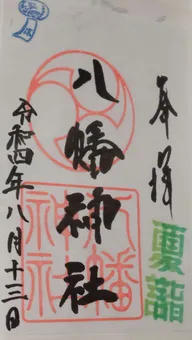 奉拝
夏詣
八幡神社
八幡
神社
令和四年八月十三日